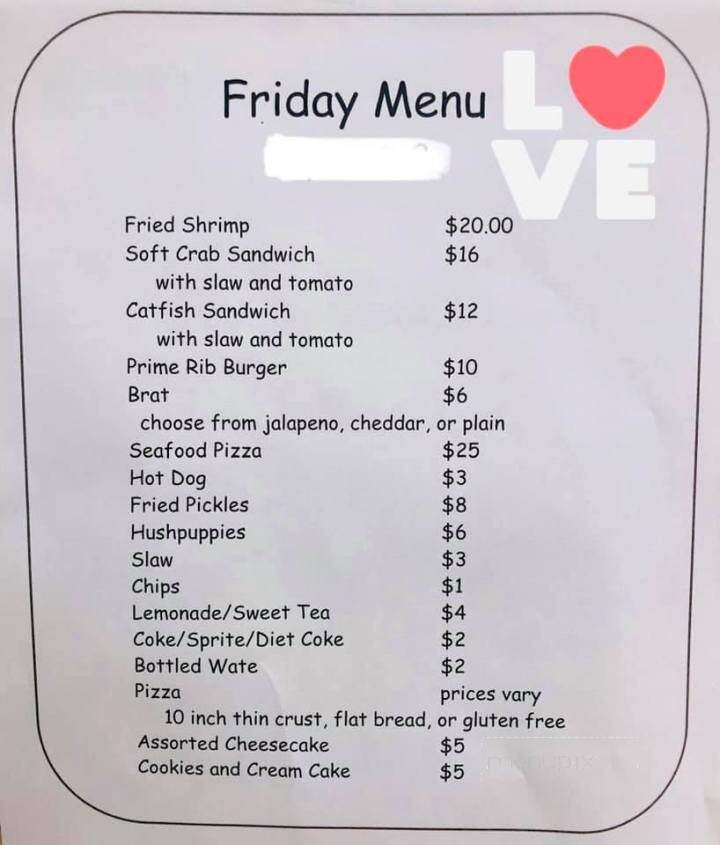 Friday Menu
L❤VE
Fried Shrimp $20.00
Soft Crab Sandwich $16
with slaw and tomato
Catfish Sandwich $12
with slaw and tomato
Prime Rib Burger $10
Brat $6
choose from jalapeno, cheddar, or plain
Seafood Pizza $25
Hot Dog $3
Fried Pickles $8
Hushpuppies $6
Slaw $3
Chips $1
Lemonade/Sweet Tea $4
Coke/Sprite/Diet Coke $2
Bottled Wate $2
Pizza prices vary
10 inch thin crust, flat bread, or gluten free
Assorted Cheesecake $5
Cookies and Cream Cake $5